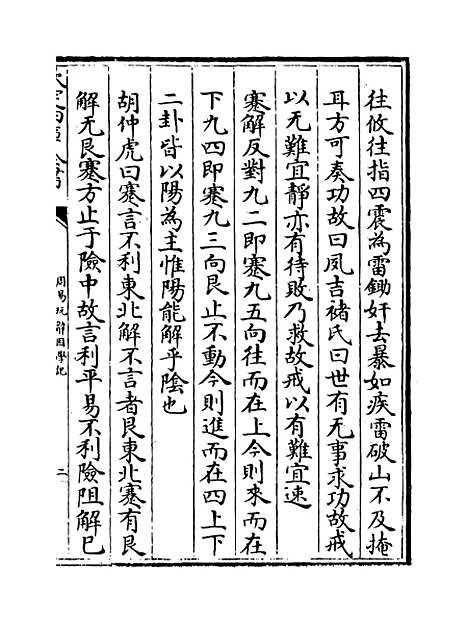 往攸往指四震為雷鋤奸去暴如疾雷破山不及掩
耳方可奏功故曰夙吉褚氏曰世有无事求功故戒
以无難宜靜亦有待敗乃救故戒以有難宜速
蹇解反對九二即蹇九五向往而在上今則來而在
下九四即蹇九三向艮止不動今則進而在四上下
二卦皆以陽為主惟陽能解乎陰也
胡仲虎曰蹇言不利東北解不言者艮東北蹇有艮
解无艮蹇方止于險中故言利平易不利險阻解已
欽定四庫全書
周易玩辭困學記
二